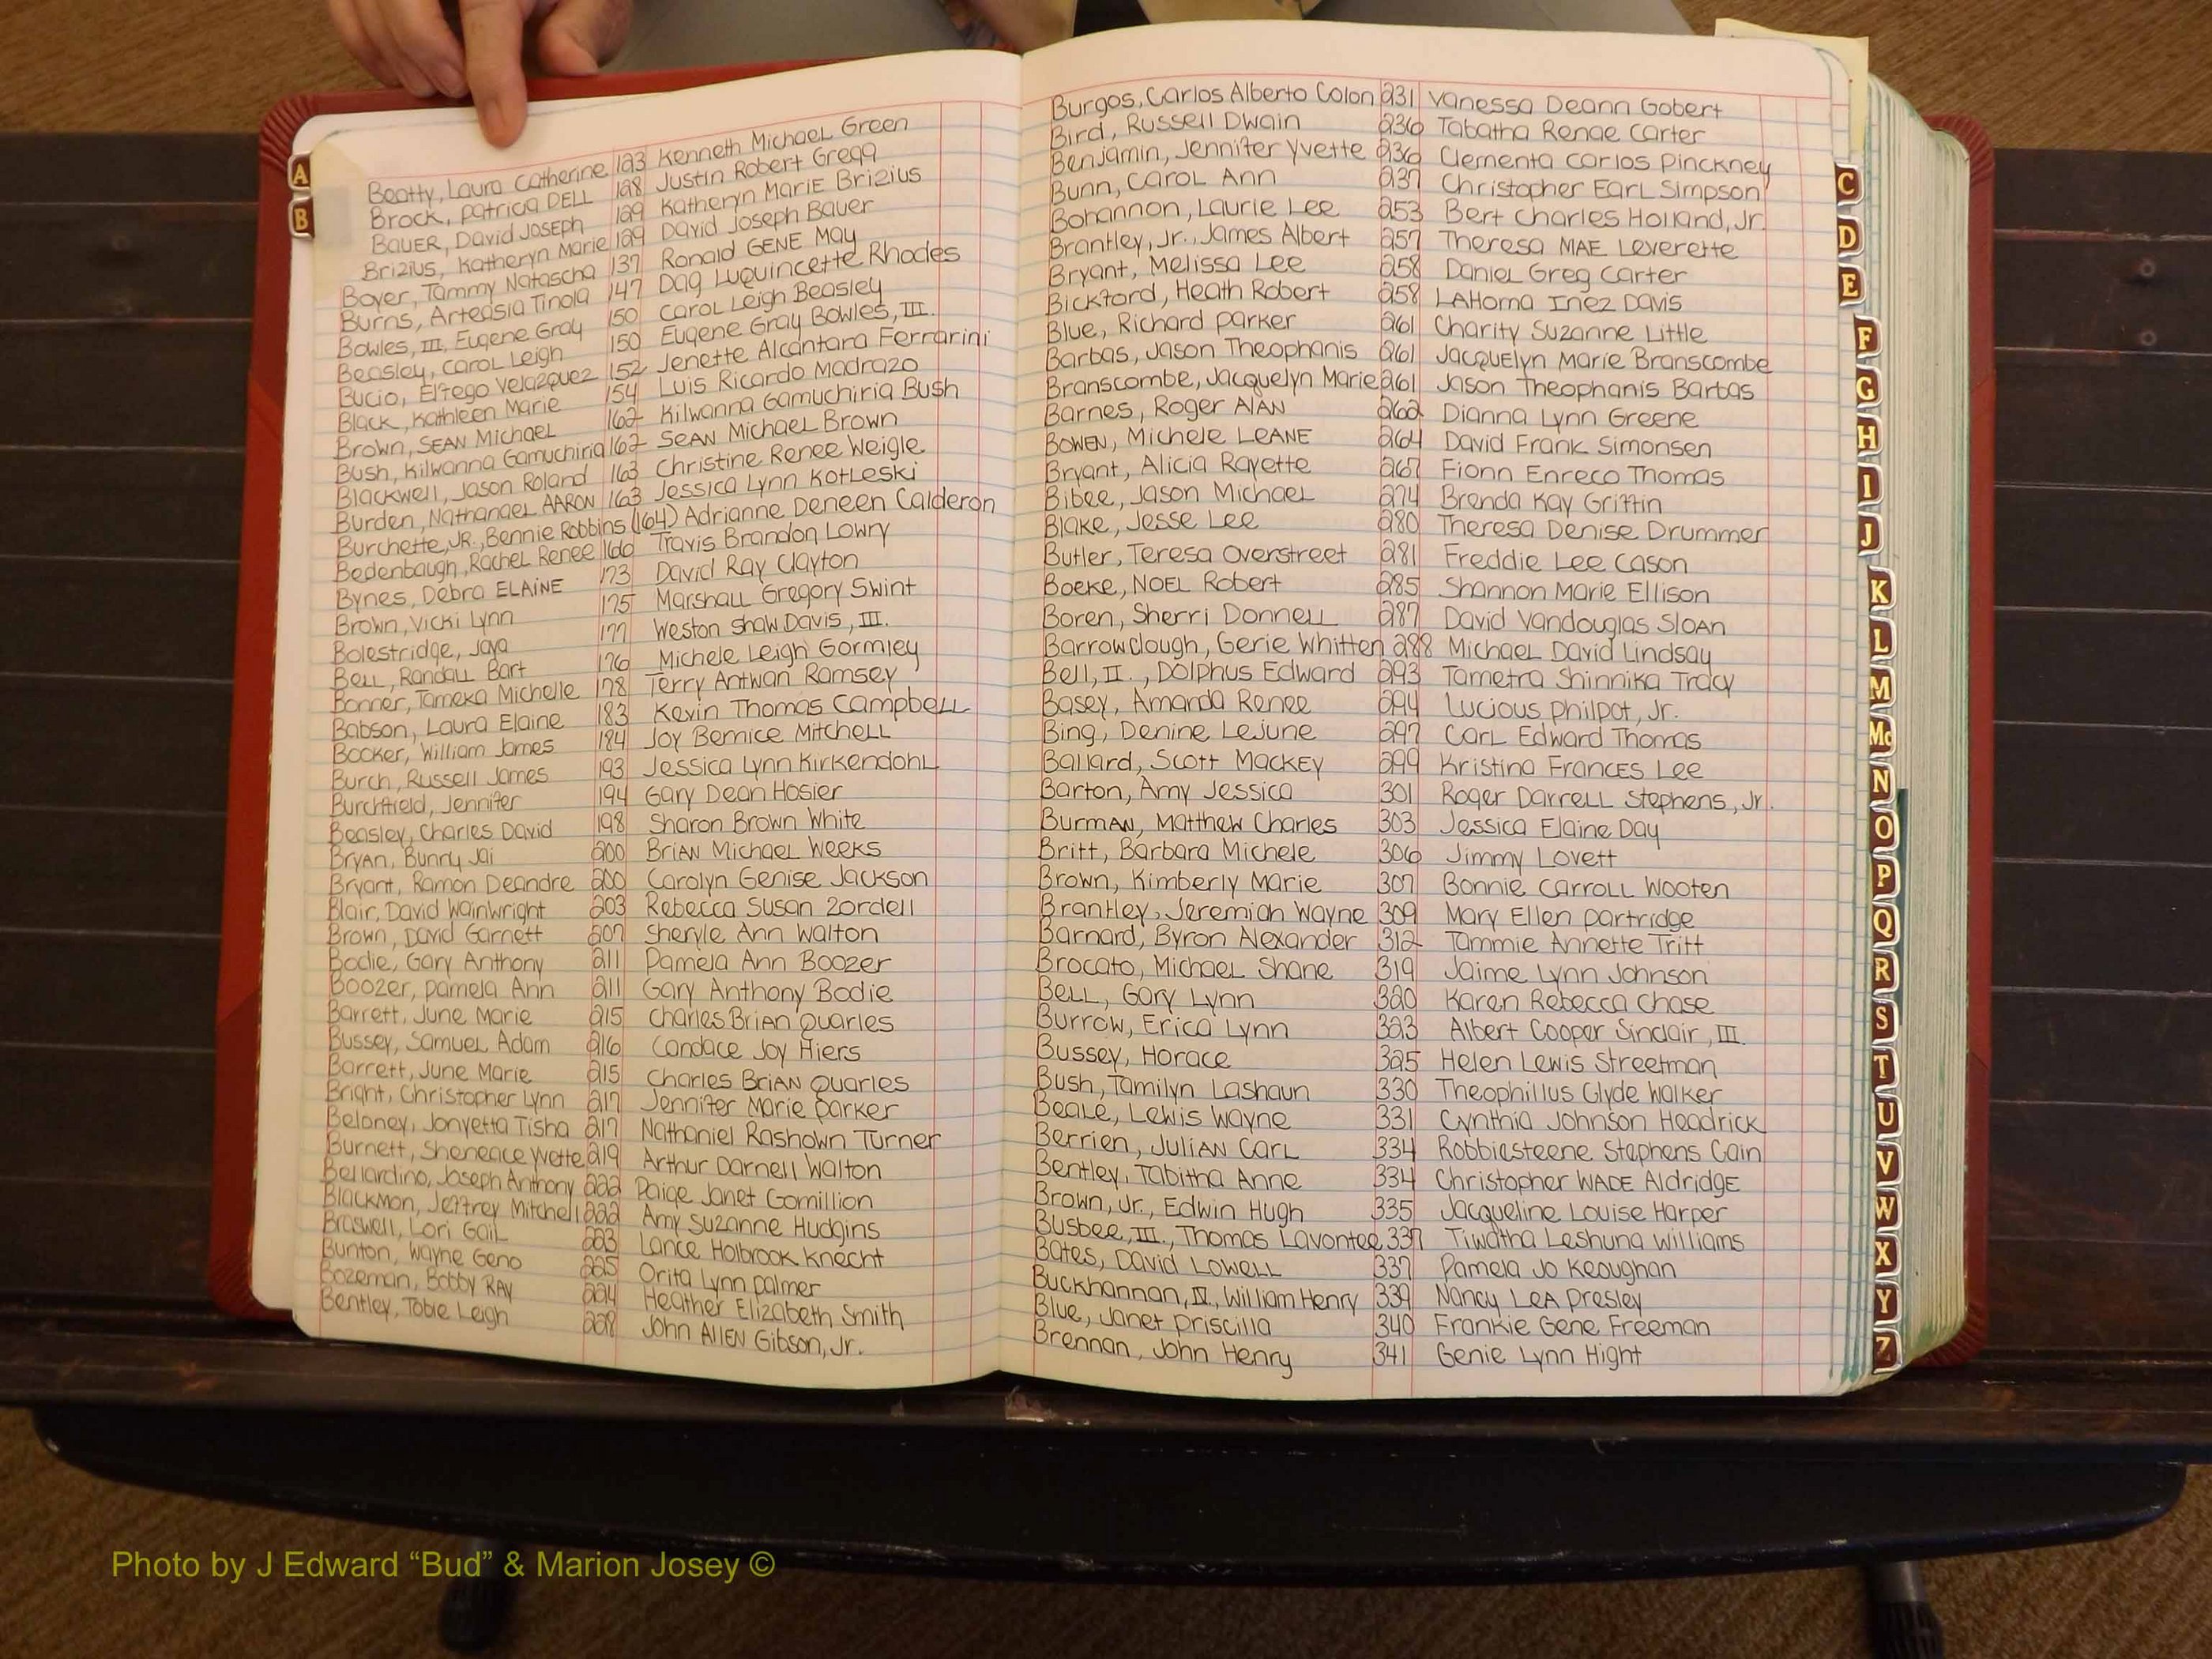 A
B
Beatty, Laura Catherine 123 Kenneth Michael Green
Brock, Patricia DELL 128 Justin Robert Gregg
BAUER, David Joseph 129 Katheryn Marie Brizius
Brizius, Katheryn Marie 129 David Joseph Bauer
Boyer, Tammy Natascha 137 Ronald GENE May
Burns, Arteasia Tinola 147 Dag Luquincette Rhodes
Bowles, III, Eugene Gray 150 Carol Leigh Beasley
Beasley, Carol Leigh 150 Eugene Gray Bowles, III.
Bucio, Elfego Velazquez 152 Jenette Alcantara Ferrarini
Black, Kathleen Marie 154 Luis Ricardo Madrazo
Brown, SEAN Michael 162 Kilwanna Gamuchiria Bush
Bush, Kilwanna Gamuchiria 162 SEAN Michael Brown
Blackwell, Jason Roland 163 Christine Renee Weigle
Burden, Nathanael AARON 163 Jessica Lynn Kotleski
Burchette, JR., Bennie Robbins (164) Adrianne Deneen Calderon
Bedenbaugh, Rachel Renee 166 Travis Brandon Lowry
Bynes, Debra ELAINE 173 David Ray Clayton
Brown, Vicki Lynn 175 Marshall Gregory Swint
Bolestridge, Jaya 177 Weston Shaw Davis, III.
Bell, Randall Bart 176 Michele Leigh Gormley
Bonner, Tameka Michelle 178 Terry Antwan Ramsey
Babson, Laura Elaine 183 Kevin Thomas Campbell
Booker, William James 184 Joy Bernice Mitchell
Burch, Russell James 193 Jessica Lynn Kirkendohl
Burchfield, Jennifer 194 Gary Dean Hosier
Beasley, Charles David 198 Sharon Brown White
Bryan, Bunny Jai 200 Brian Michael Weeks
Bryant, Ramon Deandre 200 Carolyn Genise Jackson
Blair, David Wainwright 203 Rebecca Susan Zordell
Brown, David Garnett 207 Sheryle Ann Walton
Bodie, Gary Anthony 211 Pamela Ann Boozer
Boozer, Pamela Ann 211 Gary Anthony Bodie
Barrett, June Marie 215 Charles Brian Quarles
Bussey, Samuel Adam 216 Candace Joy Hiers
Barrett, June Marie 215 Charles Brian Quarles
Bright, Christopher Lynn 217 Jennifer Marie Parker
Beloney, Jonyetta Tisha 217 Nathaniel Rashown Turner
Burnett, Sheneace Yvette 219 Arthur Darnell Walton
Bellardino, Joseph Anthony 222 Paige Janet Gomillion
Blackmon, Jeffrey Mitchell 222 Amy Suzanne Hudgins
Braswell, Lori Gail 223 Lance Holbrook Knecht
Bunton, Wayne Geno 225 Orita Lynn Palmer
Bozeman, Bobby Ray 224 Heather Elizabeth Smith
Bentley, Tobie Leigh 228 John Allen Gibson, Jr.
Burgos, Carlos Alberto Colon 231 Vanessa Deann Gobert
Bird, Russell Dwain 236 Tabatha Renae Carter
Benjamin, Jennifer Yvette 236 Clementa Carlos Pinckney
Bunn, Carol Ann 237 Christopher Earl Simpson
Bohannon, Laurie Lee 253 Bert Charles Holland, Jr.
Brantley, Jr., James Albert 257 Theresa MAE Leverette
Bryant, Melissa Lee 258 Daniel Greg Carter
Bickford, Heath Robert 258 LAHoma Inez Davis
Blue, Richard Parker 261 Charity Suzanne Little
Barbas, Jason Theophanis 261 Jacquelyn Marie Branscombe
Branscombe, Jacquelyn Marie 261 Jason Theophanis Barbas
Barnes, Roger Alan 262 Dianna Lynn Greene
BOWEN, Michele LEANE 264 David Frank Simonsen
Bryant, Alicia Rayette 267 Fionn Enreco Thomas
Bibee, Jason Michael 274 Brenda Kay Griffin
Blake, Jesse Lee 280 Theresa Denise Drummer
Butler, Teresa Overstreet 281 Freddie Lee Cason
Boeke, NOEL Robert 285 Shannon Marie Ellison
Boren, Sherri Donnell 287 David Vandouglas Sloan
Barrowclough, Gerie Whitten 288 Michael David Lindsay
Bell, II., Dolphus Edward 293 Tametra Shinnika Tracy
Basey, Amanda Renee 294 Lucious Philpot, Jr.
Bing, Denine Lejune 297 Carl Edward Thomas
Ballard, Scott Mackey 299 Kristina Frances Lee
Barton, Amy Jessica 301 Roger Darrell Stephens, Jr.
Burman, Matthew Charles 303 Jessica Elaine Day
Britt, Barbara Michele 306 Jimmy Lovett
Brown, Kimberly Marie 307 Bonnie Carroll Wooten
Brantley, Jeremiah Wayne 309 Mary Ellen Partridge
Barnard, Byron Alexander 312 Tammie Annette Tritt
Brocato, Michael Shane 319 Jaime Lynn Johnson
BELL, Gary Lynn 320 Karen Rebecca Chase
Burrow, Erica Lynn 323 Albert Cooper Sinclair, III.
Bussey, Horace 325 Helen Lewis Streetman
Bush, Tamilyn Lashaun 330 Theophillus Glyde Walker
Beale, Lewis Wayne 331 Cynthia Johnson Headrick
Berrien, Julian Carl 334 Robbiesteene Stephens Cain
Bentley, Tabitha Anne 334 Christopher WADE Aldridge
Brown, Jr., Edwin Hugh 335 Jacqueline Louise Harper
Busbee, III., Thomas Lavontee 337 Tiwatha Leshuna Williams
Bates, David Lowell 337 Pamela Jo Keoughan
Buckhannan, II., William Henry 339 Nancy Lea Presley
Blue, Janet Priscilla 340 Frankie Gene Freeman
Brennan, John Henry 341 Genie Lynn Hight
C
D
E
F
G
H
I
J
K
L
M
Mc
N
O
P
Q
R
S
T
U
V
W
X
Y
Z
Photo by J Edward “Bud” & Marion Josey ©